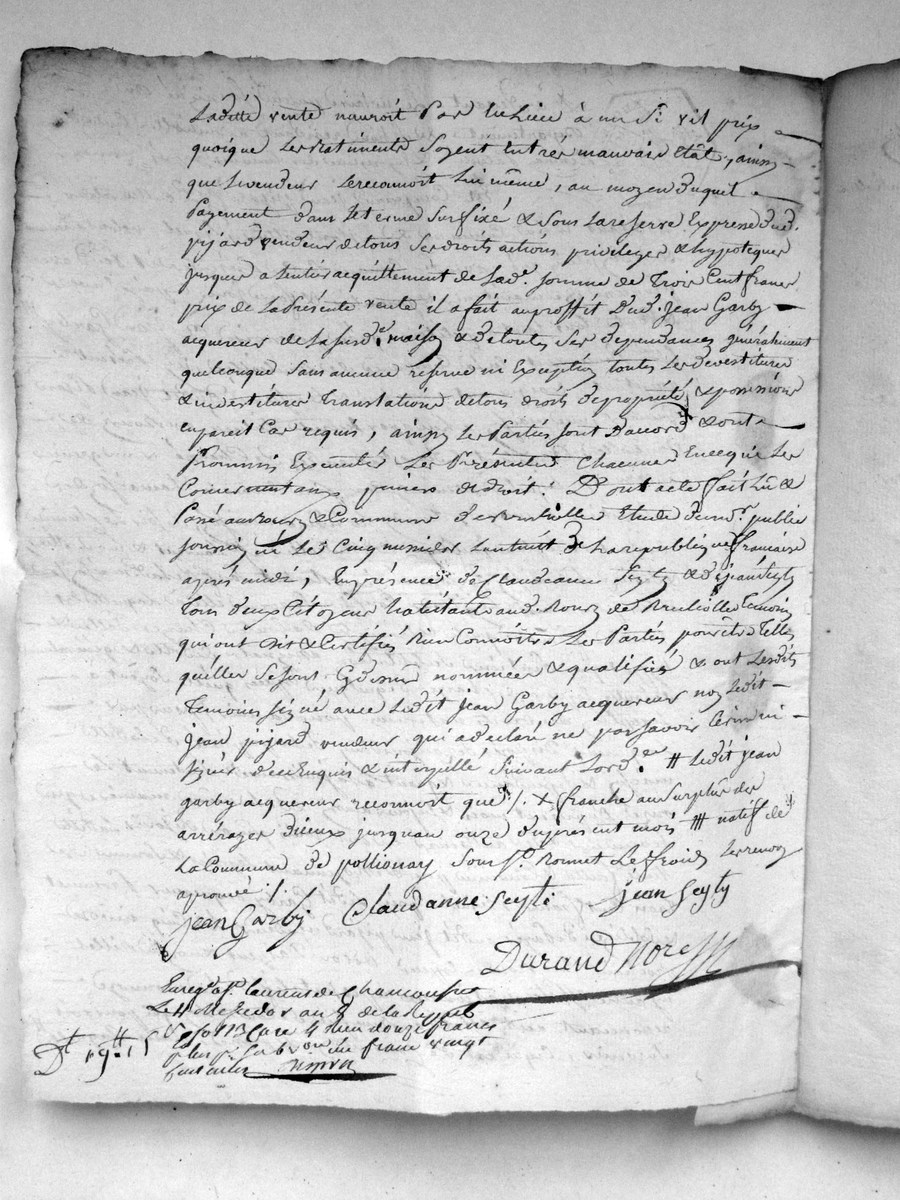 Ladite vente nauroit Pas eu Lieu à un Si vil prix
quoique Les Batiments Soyent en très mauvais Etât, ainsy
que Le vendeur Le reconnoit Lui même, au moyen duquel
Payement dans Le terme Surfixé & Sous La reserve Expresse dud.
pijard vendeur de tous Ses droits actions privileges & hypoteques
jusques a Lentier acquittement de Lad.e somme de Trois Cent francs
prix de La Présente vente il a fait au proffit Dud. Jean Garby
acquereur de La susd.e maison & de toutes Ses dependances généralement
quelconque Sans aucune reserve ni Exception toutes Les devestitures
& investitures Translations de tous droits de propriété & possession
en pareil Cas requis, ainsy Les Parties Sont D'accord & ont
Promis Executer Les Présentes Chacune En ce qui Les
Concernent aux peines de droit. Dont acte fait Lu &
Passé au Bourg & Commune de Etude du no.re public
soussigné Le Cinq messidor Lan huit de La republique francaise
après midi, En présence de Claudeanne Seyty & de jean Seyty
Tous deux Citoyens habitants aud. Bourg de temoins
qui ont dit & Certifiés Bien Connoitre Les Parties pour être Telles
qu'elles Se Sont Cy dessus nommées & qualifiés & ont Lesdits
Temoins signé avec Ledit jean Garby acquereur non Ledit
jean pijard vendeur qui a declaré ne pas Savoir Ecrire ni
signer de ce Enquis & interpellé Suivant Lord.ce # Ledit jean
garby acquereur reconnoit que /. x franche au Surplus des
arrérages diceux jusquau onze du présent mois ### natif de
La Commune de pollionay sous Les renvoy
aprouvé /.
jean Garby Claudanne Seyti jean Seyty
Durand Nore
Enreg. a St. laurent de Chamousset
Le Messidor an 8 de la Repub
fo 113 Case 4 Reçu douze francs
plus un franc vingt
Centimes